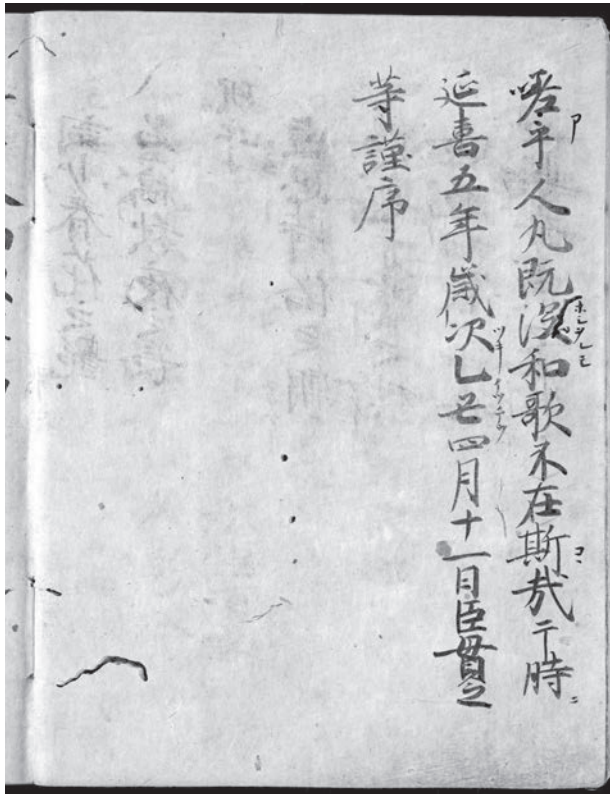 嗟乎人丸既没和歌不在斯哉于時
延喜五年歳次乙丑四月十一日臣貫之
等謹序